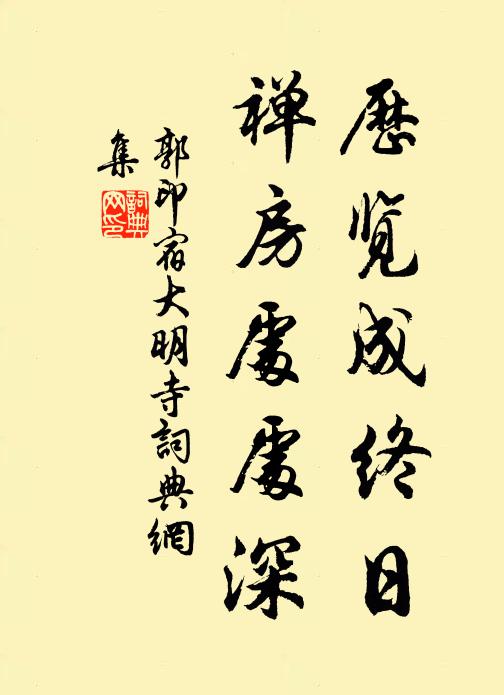 歷覽成終日
禅房處處深
郭印宿大明寺詞典網
集
詞典
网印